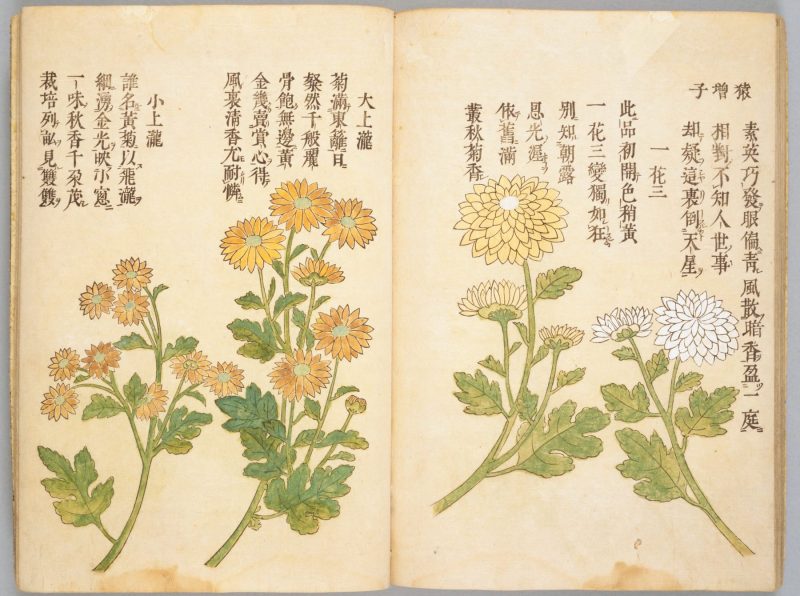 猿増子
素英巧發眼偏靑風散暗香盈一庭
相對不知人世事
却疑這裏倒天星
一花三
此品初開色稍黄
一花三變獨如狂
別知朝露
恩光渥
依舊滿
叢秋菊香
大上瀧
菊滿東籬日
粲然千般耀
骨飽無邊黄
金幾賣賞心待
風裏清香尤耐憐
小上瀧
誰名黄菊以飛瀧
細湧金光映小窓
一味秋香千朶茂
栽培列砌見雙雙